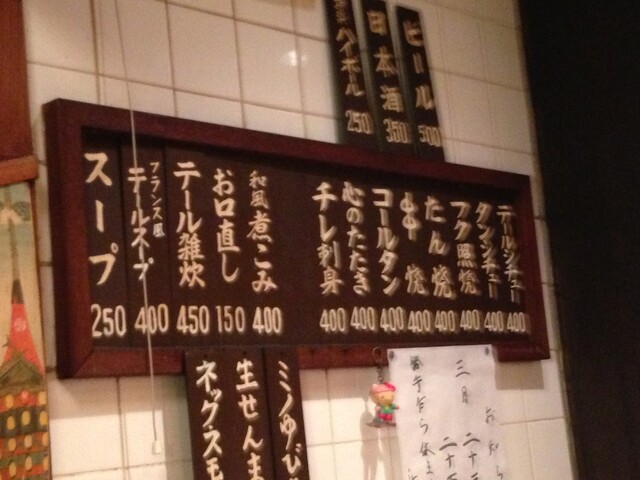 ビール 500
日本酒 350
ハイボール 250
テールシチュー 400
タンシチュー 400
フク照焼 400
たん焼 400
串焼 400
コールタン 400
心のたたき 400
チレ刺身 400
和風煮こみ 400
お口直し 150
テール雑炊 450
フランス風テールスープ 400
スープ 250
ミノゆび
生せんま
ネックスモ
お知ら
三月